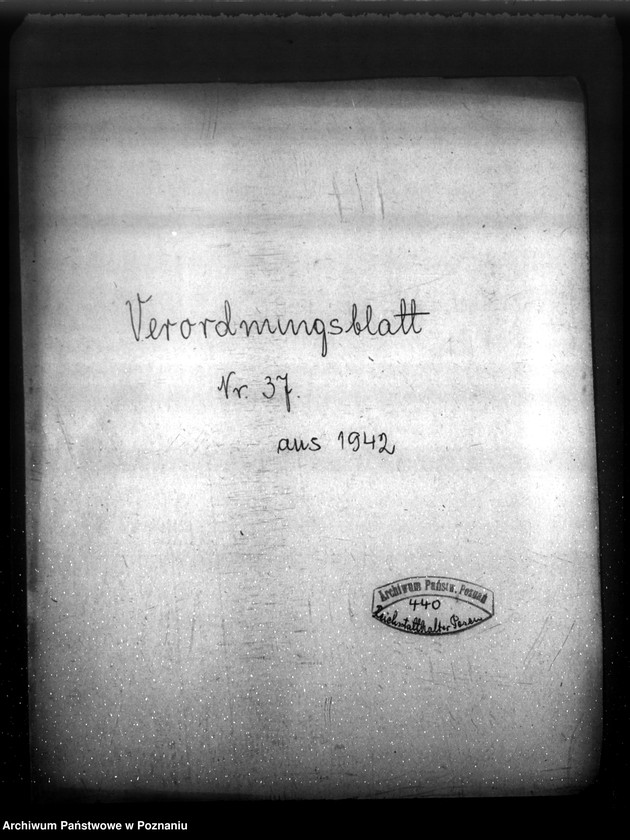 Verordnungsblatt
Nr. 37.
aus 1942
Archiwum Państw. Poznań
440
Reichsstatthalter Posen
Archiwum Państwowe w Poznaniu